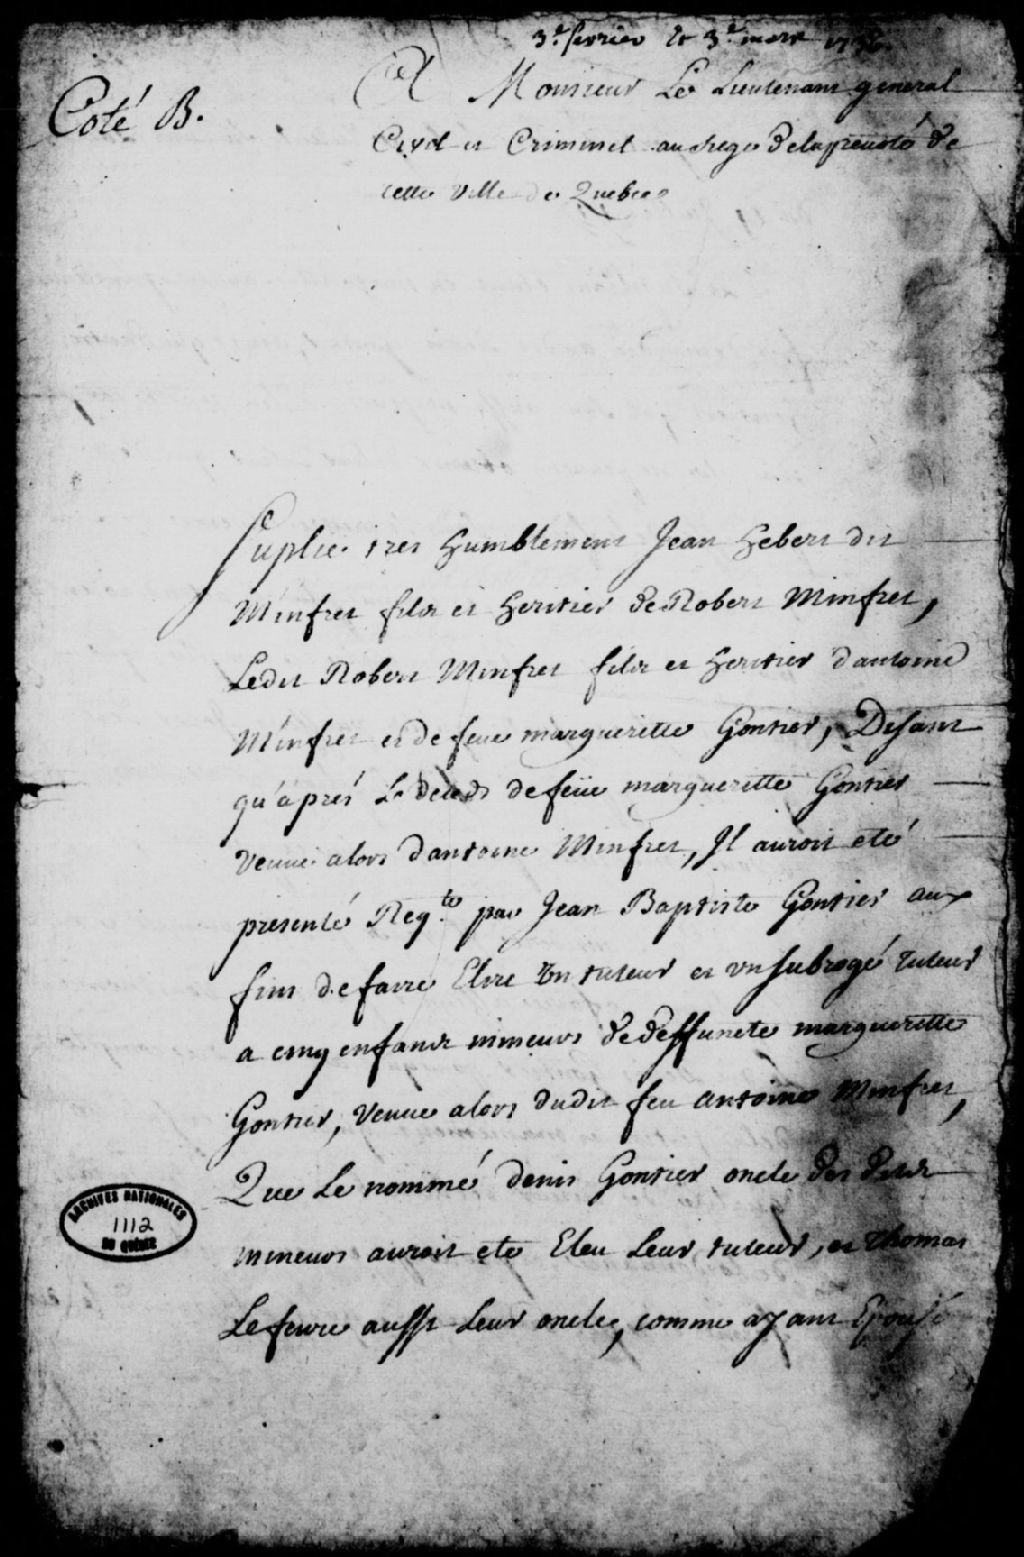 3e. fevrier et 3e. mars
Coté B.
A Monsieur Le Lieutenant general
Civil et Criminel au siege dela prevoté de
cette Ville de Quebec
Suplie tres humblement Jean hebert dit
Minfret fils et heritier de Robert Minfret,
Ledit Robert Minfret fils et heritier d'antoine
Minfret et de feue margueritte Gontier, Disant
qu'aprés Le deceds de feüe margueritte Gontier
veuve alors d'antoine Minfret, Il auroit eté
presenté Reqte. par Jean Baptiste Gontier aux
fins de faire Elire un tuteur et un subrogé tuteur
a cinq enfans mineurs de deffuncte margueritte
Gontier, veuve alors dudit feu antoine Minfret,
Que Le nommé denis Gontier oncle des petits
mineurs auroit ete Eleu Leur tuteur, et Thomas
Lefevre aussi Leur oncle, comme ayant Epousé
ARCHIVES NATIONALES
1112
DU QUÉBEC